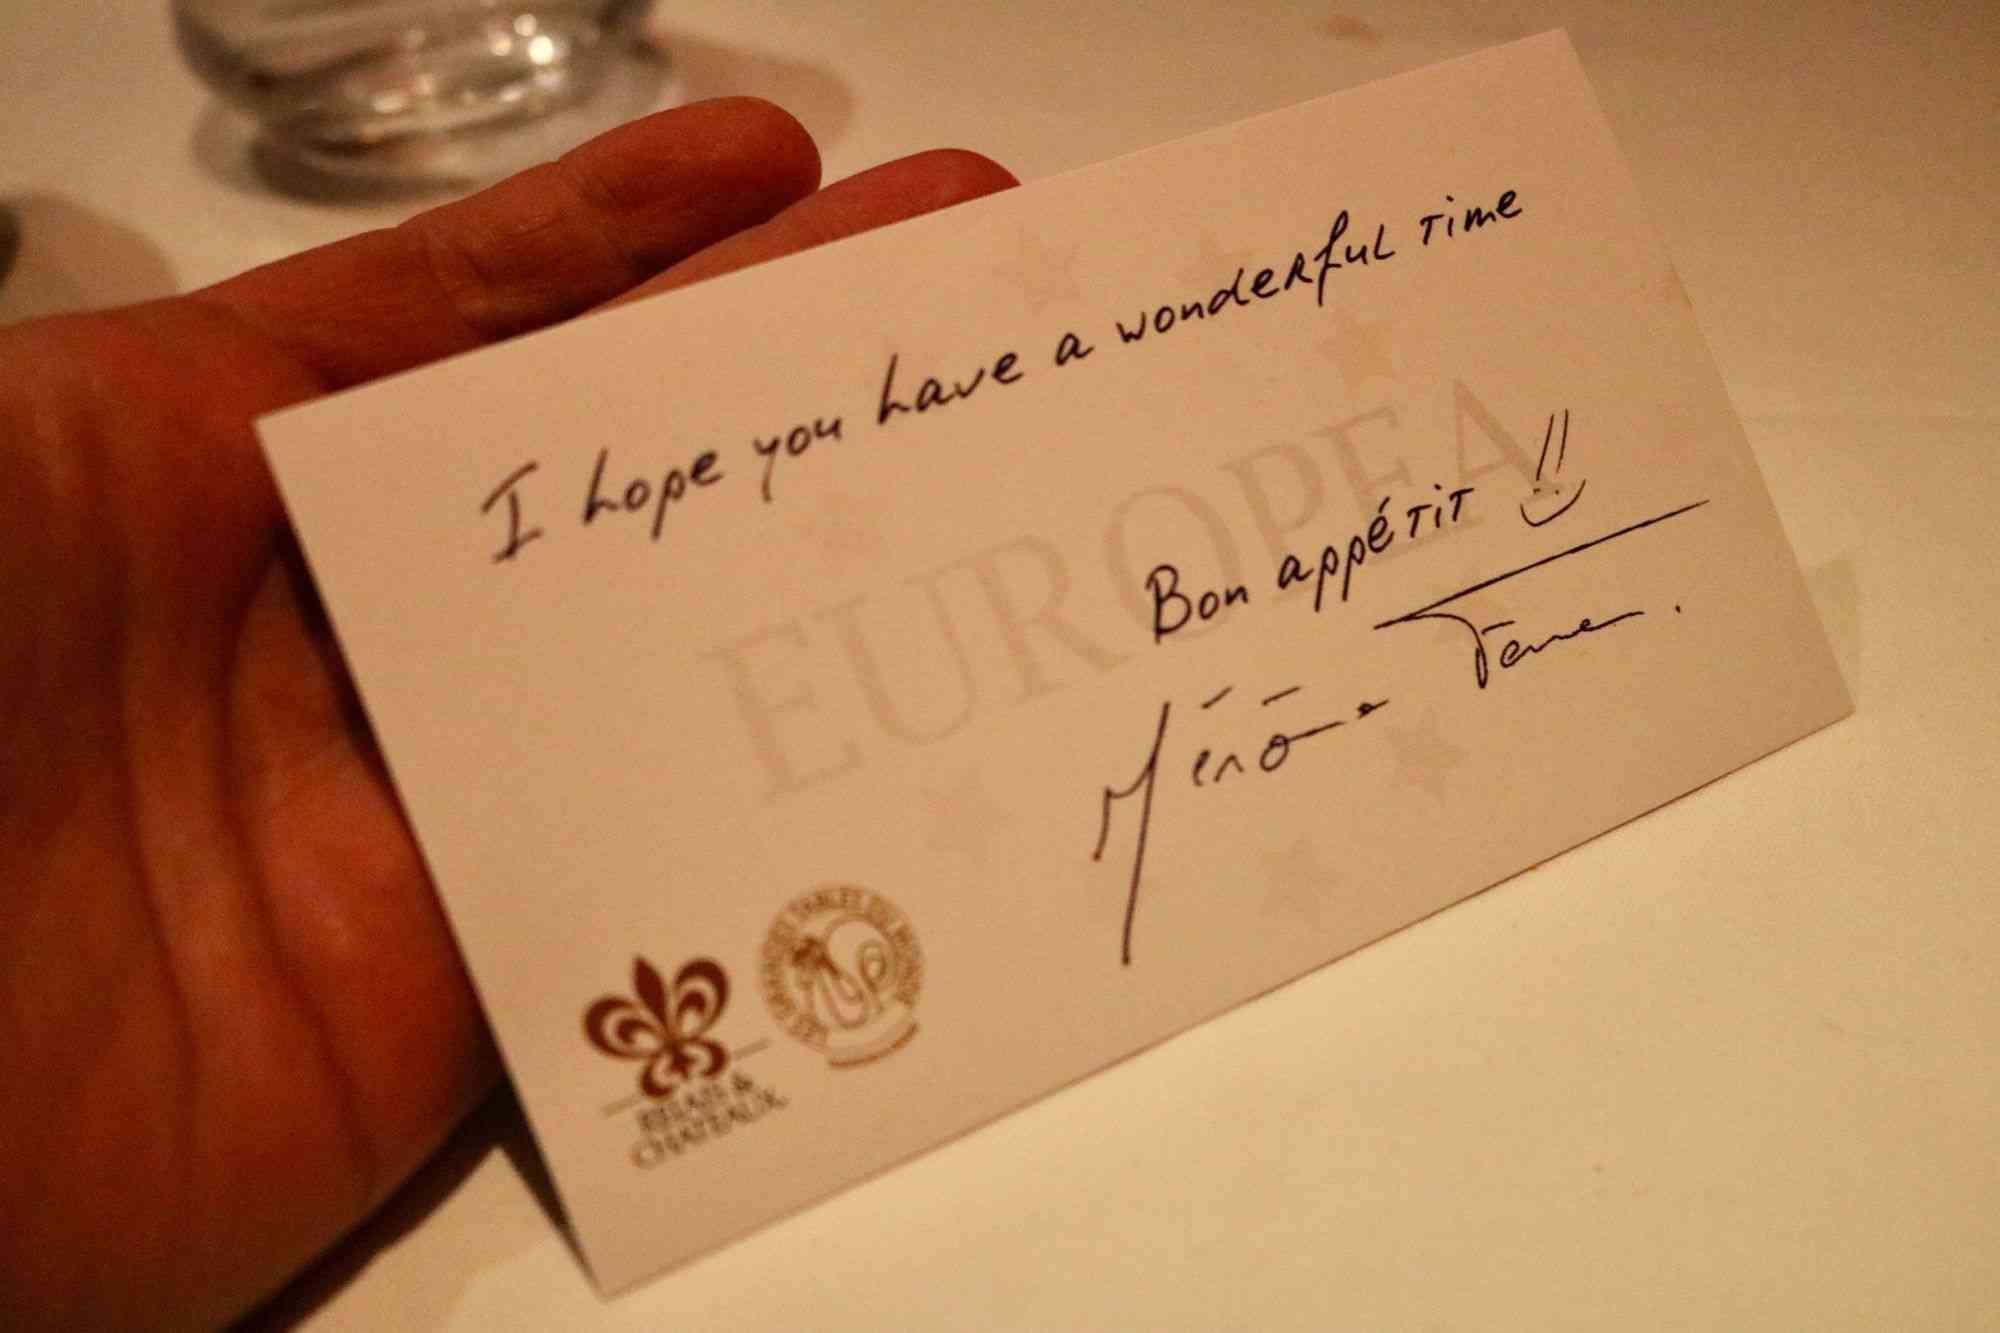 I hope you have a wonderful time
EUROPEA
Bon appétit !!
Jérôme
RELAIS &
CHATEAUX
LES GRANDES TABLES DU MONDE